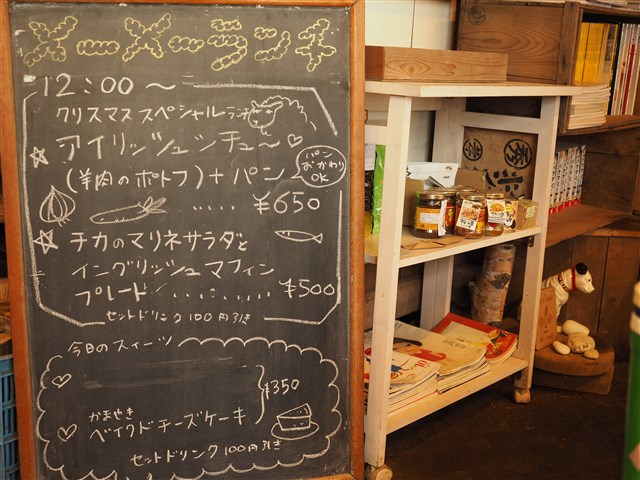 メーメーランチ
12:00〜
クリスマス スペシャルランチ
アイリッシュシチュー♡
(羊肉のポトフ)+パン
パン
おかわり
OK
‥‥ ¥650
チカのマリネサラダと
イングリッシュマフィン
プレート ‥‥‥‥ ¥500
セットドリンク 100円引き
今日のスイーツ
¥350
かまやき
ベイクドチーズケーキ
セットドリンク 100円引き